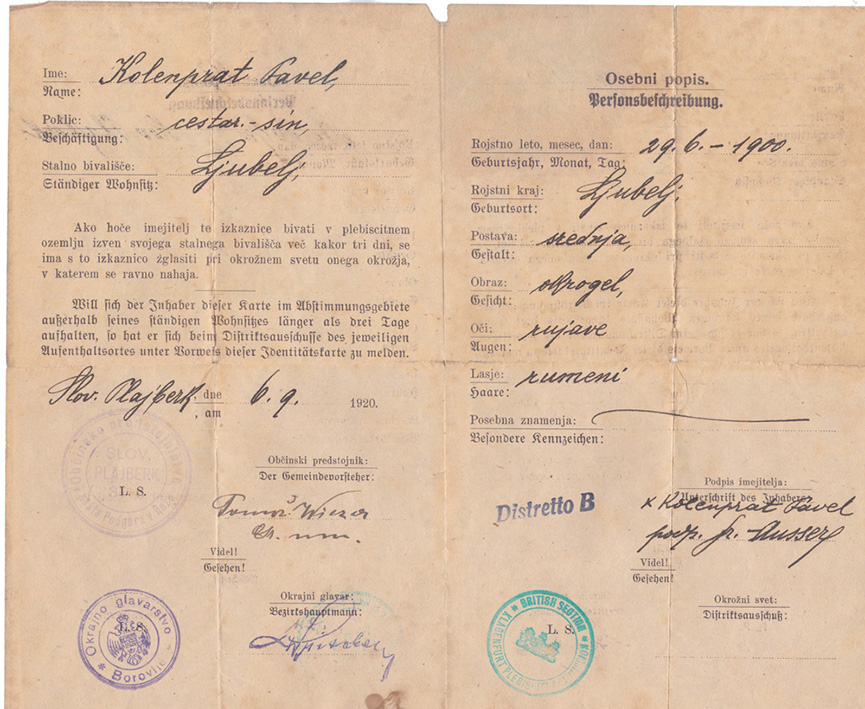 Ime: Kolenprat Pavel,
Name:
Poklic: cestar.-sin,
Beschäftigung:
Stalno bivališče: Ljubelj,
Ständiger Wohnsitz:
Ako hoče imejitelj te izkaznice bivati v plebiscitnem
ozemlju izven svojega stalnega bivališča več kakor tri dni, se
ima s to izkaznico žglasiti pri okrožnem svetu onega okrožja,
v katerem se ravno nahaja.
Will sich der Inhaber dieser Karte im Abstimmungsgebiete
außerhalb seines ständigen Wohnsitzes länger als drei Tage
aufhalten, so hat er sich beim Distriktsausschusse des jeweiligen
Aufenthaltsortes unter Vorweis dieser Identitätskarte zu melden.
Slov. Plajberk, dne 6. 9. 1920.
, am
SLOV.
PLAJBERK
L. S.
Občinski predstojnik:
Der Gemeindevorsteher:
Tomaž
Videl!
Gesehen!
Okrajni glavar:
Bezirkshauptmann:
Okrajno glavarstvo
L. S.
* Borovlje *
Osebni popis.
Personsbeschreibung.
Rojstno leto, mesec, dan: 29. 6. – 1900.
Geburtsjahr, Monat, Tag:
Rojstni kraj: Ljubelj,
Geburtsort:
Postava: srednja,
Gestalt:
Obraz: okrogel,
Gesicht:
Oči: rujave
Augen:
Lasje: rumeni
Haare:
Posebna znamenja:
Besondere Kennzeichen:
Podpis imejitelja:
Unterschrift des Inhabers
Distretto B
x Kolenprat Pavel
podp.
Videl!
Gesehen!
Okrožni svet:
Distriktsausschuß:
BRITISH SECTION
L. S.
KLAGENFURT